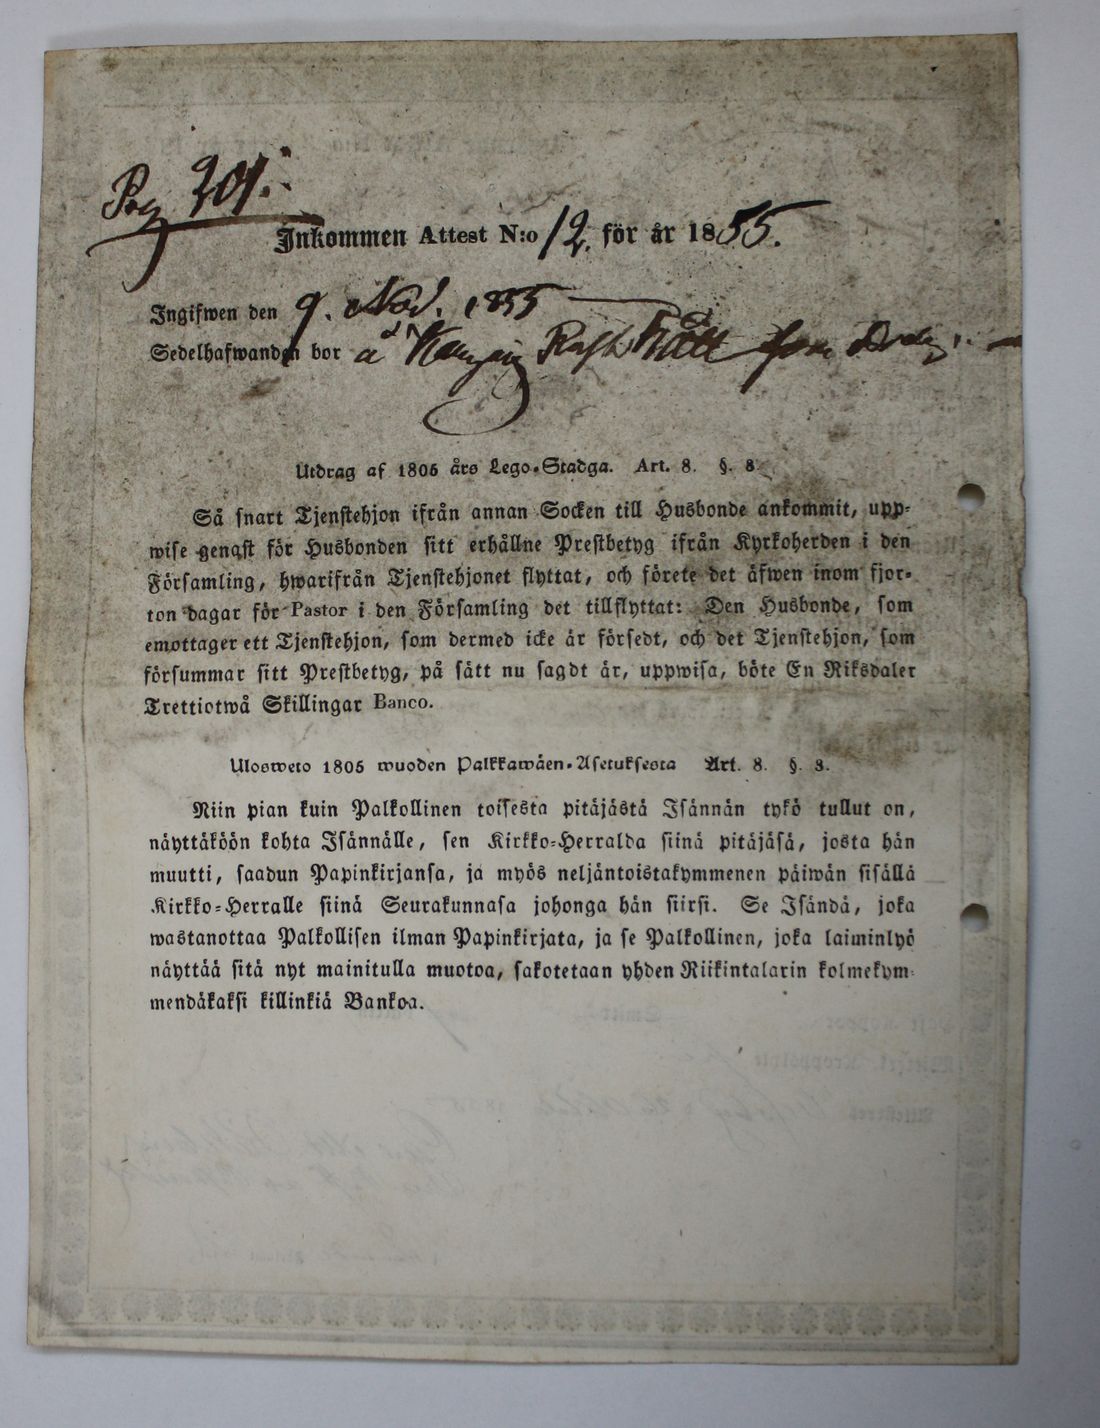 Pag 301.
Inkommen Attest N:o 12. för år 1855.
Ingifwen den 9. Nov. 1855
Sedelhafwanden bor å
Utdrag af 1805 års Lego-Stadga. Art. 8. §. 8.
Så snart Tjenstehjon ifrån annan Socken till Husbonde ankommit, upp-
wise genast för Husbonden sitt erhållne Prestbetyg ifrån Kyrkoherden i den
Församling, hwarifrån Tjenstehjonet flyttat, och förete det äfwen inom fjor-
ton dagar för Pastor i den Församling det tillflyttat: Den Husbonde, som
emottager ett Tjenstehjon, som dermed icke är försedt, och det Tjenstehjon, som
försummar sitt Prestbetyg, på sätt nu sagdt är, uppwisa, böte En Riksdaler
Trettiotwå Skillingar Banco.
Ulosweto 1805 wuoden Palkkawäen-Asetuksesta Art. 8. §. 8.
Niin pian kuin Palkollinen toisesta pitäjästä Isännän tykö tullut on,
näyttäköön kohta Isännälle, sen Kirkko-Herralda siinä pitäjäsä, josta hän
muutti, saadun Papinkirjansa, ja myös neljäntoistakymmenen päiwän sisällä
Kirkko-Herralle siinä Seurakunnasa johonga hän siirsi. Se Isändä, joka
wastanottaa Palkollisen ilman Papinkirjata, ja se Palkollinen, joka laiminlyö
näyttää sitä nyt mainitulla muotoa, sakotetaan yhden Riikintalarin kolmekym-
mendäkaksi killinkiä Bankoa.